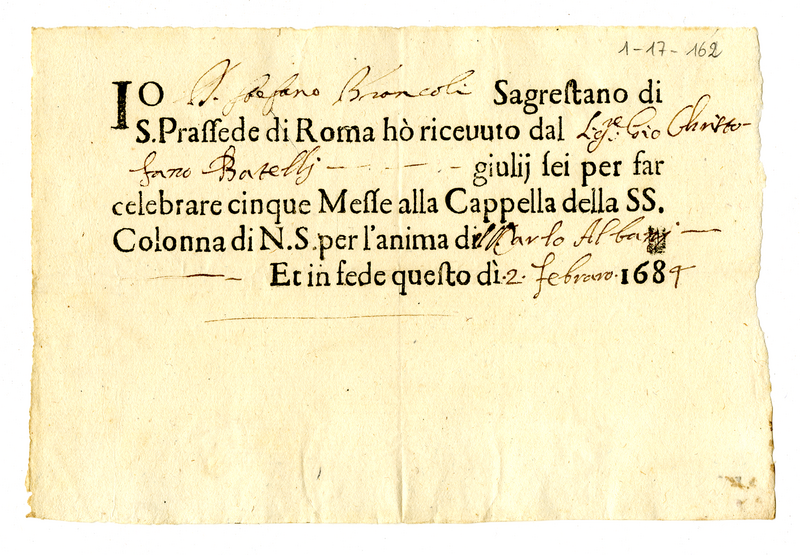 1-17-162
IO D. Stefano Broncoli Sagrestano di
S. Prassede di Roma hò riceuuto dal Sg.re Gio Christo-
fano Batellj - - - - giulij sei per far
celebrare cinque Messe alla Cappella della SS.
Colonna di N.S. per l'anima di Carlo Albanj —
— Et in fede questo dì 2. febraro. 1684